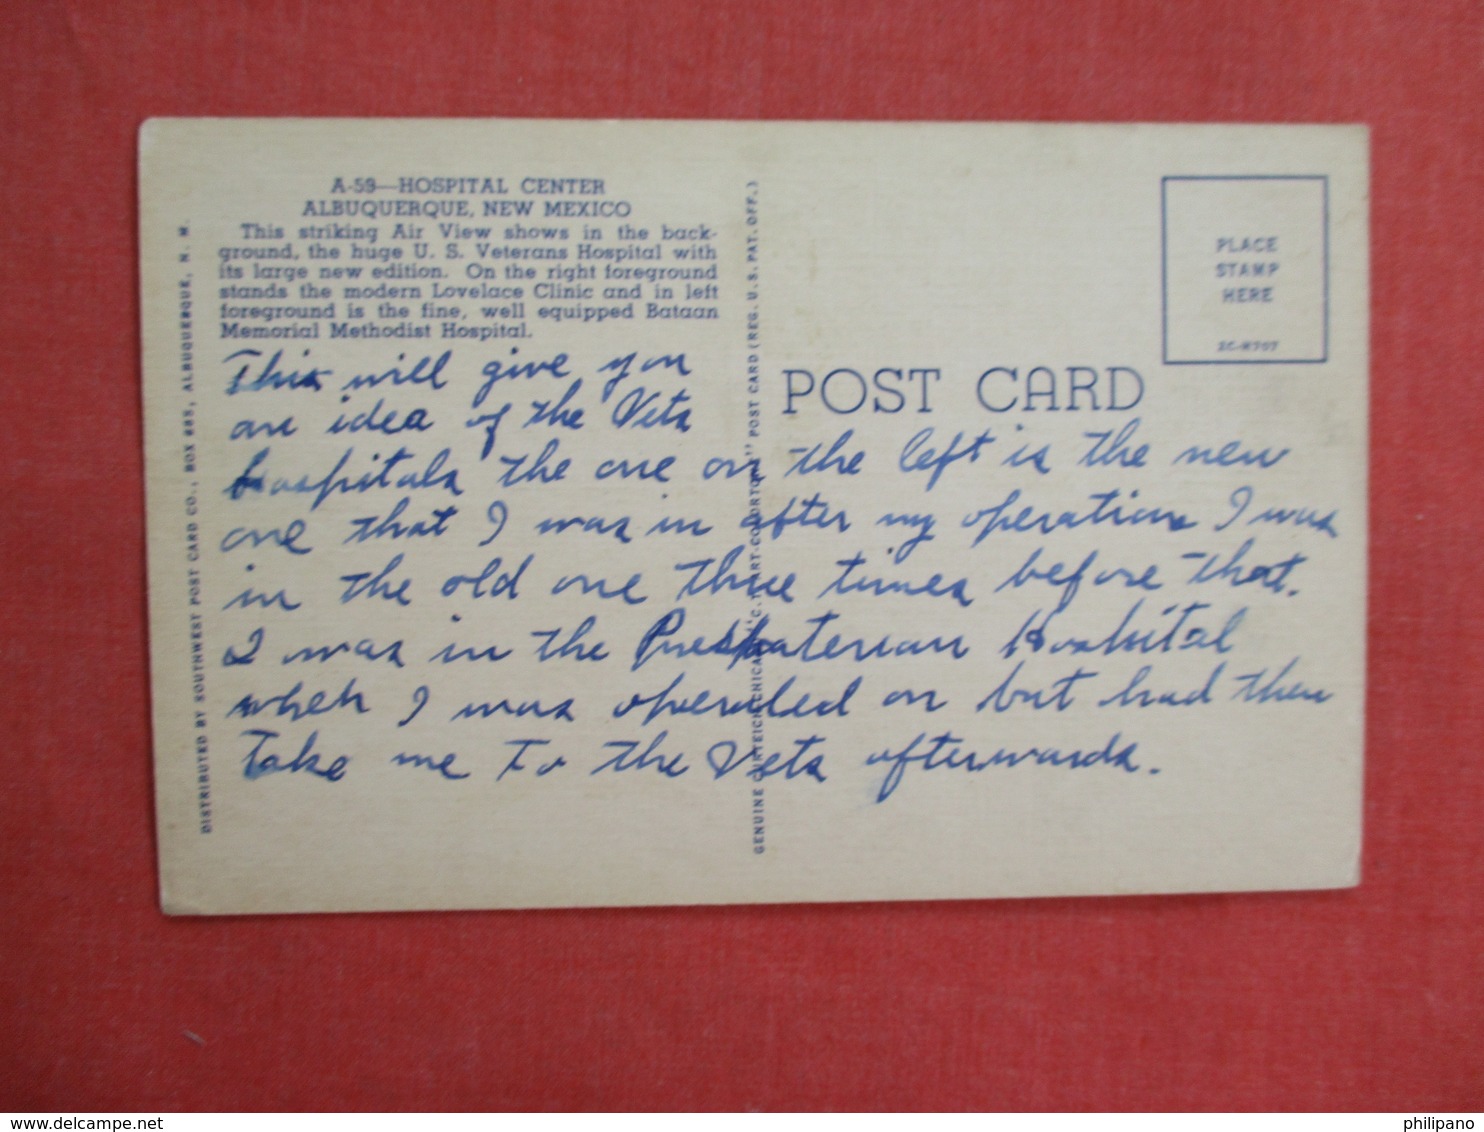 A-59—HOSPITAL CENTER
ALBUQUERQUE, NEW MEXICO
This striking Air View shows in the back-
ground, the huge U. S. Veterans Hospital with
its large new edition. On the right foreground
stands the modern Lovelace Clinic and in left
foreground is the fine, well equipped Bataan
Memorial Methodist Hospital.
This will give you
an idea of the Vets
hospitals the one on the left is the new
one that I was in after my operation I was
in the old one three times before that.
I was in the Presbaterian Hospital
when I was operated on but had them
take me to the Vets afterwards.
DISTRIBUTED BY SOUTHWEST POST CARD CO., BOX 685, ALBUQUERQUE, N. M.
GENUINE CURTEICH-CHICAGO "C.T. ART-COLORTONE" POST CARD (REG. U. S. PAT. OFF.)
POST CARD
PLACE
STAMP
HERE
2C-H707
www.delcampe.net
philipano